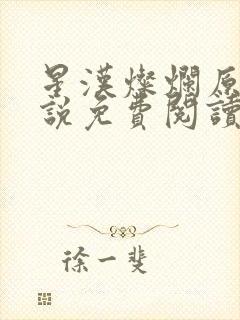 星漢燦爛原
說免費閱讀
徐一斐